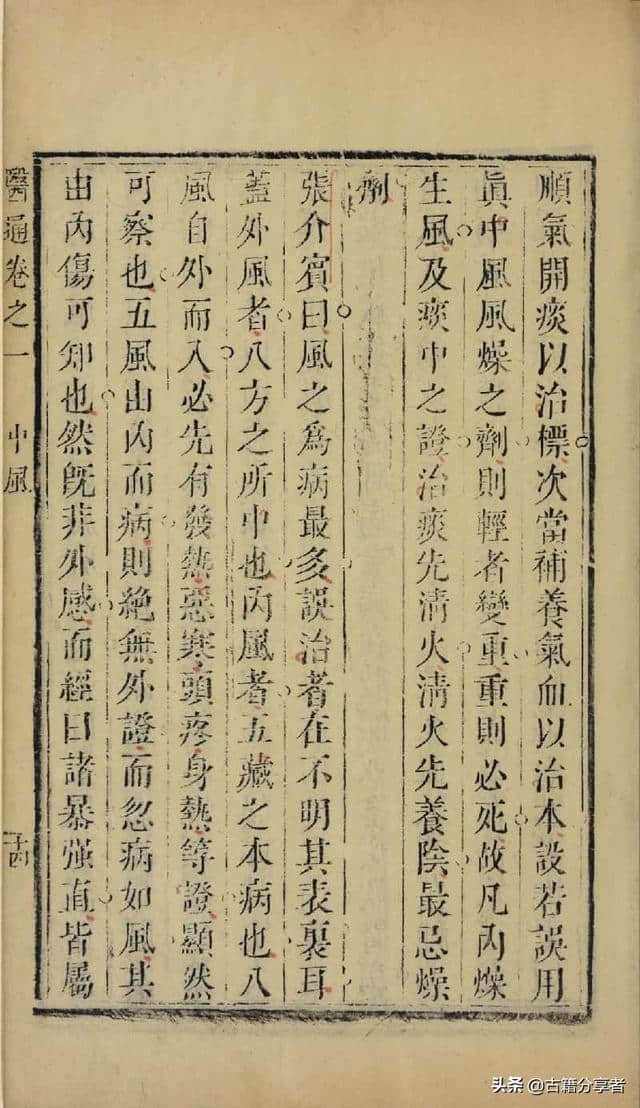 順氣開痰以治標次當補養氣血以治本設若誤用
眞中風風燥之劑則輕者變重重則必死故凡內燥
生風及痰中之證治痰先清火清火先養陰最忌燥
劑
張介賓曰風之為病最多誤治者在不明其表裏耳
蓋外風者八方之所中也內風者五藏之本病也八
風自外而入必先有發熱惡寒頭疼身熱等證顯然
可察也五風由內而病則絕無外證而忽病如風其
由內傷可知也然旣非外感而經曰諸暴强直皆屬
醫通卷之一 中風 十四
头条 @古籍分享者